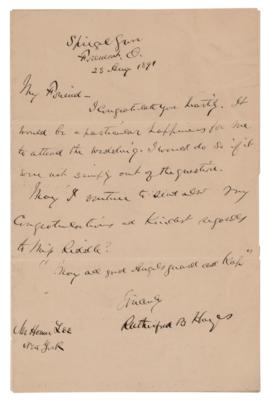 Spiegel Grove
Fremont, O.
25 Aug 1891
My Friend—
I congratulate you heartily. It
would be a particular happiness for me
to attend the wedding. I would do so if it
were not simply out of the question.
May I venture to send also my
congratulations and kindest regards
to Miss Riddle?
"May all good Angels guard and keep"
Sincerely
Rutherford B Hayes
Mr Homer Lee
New York